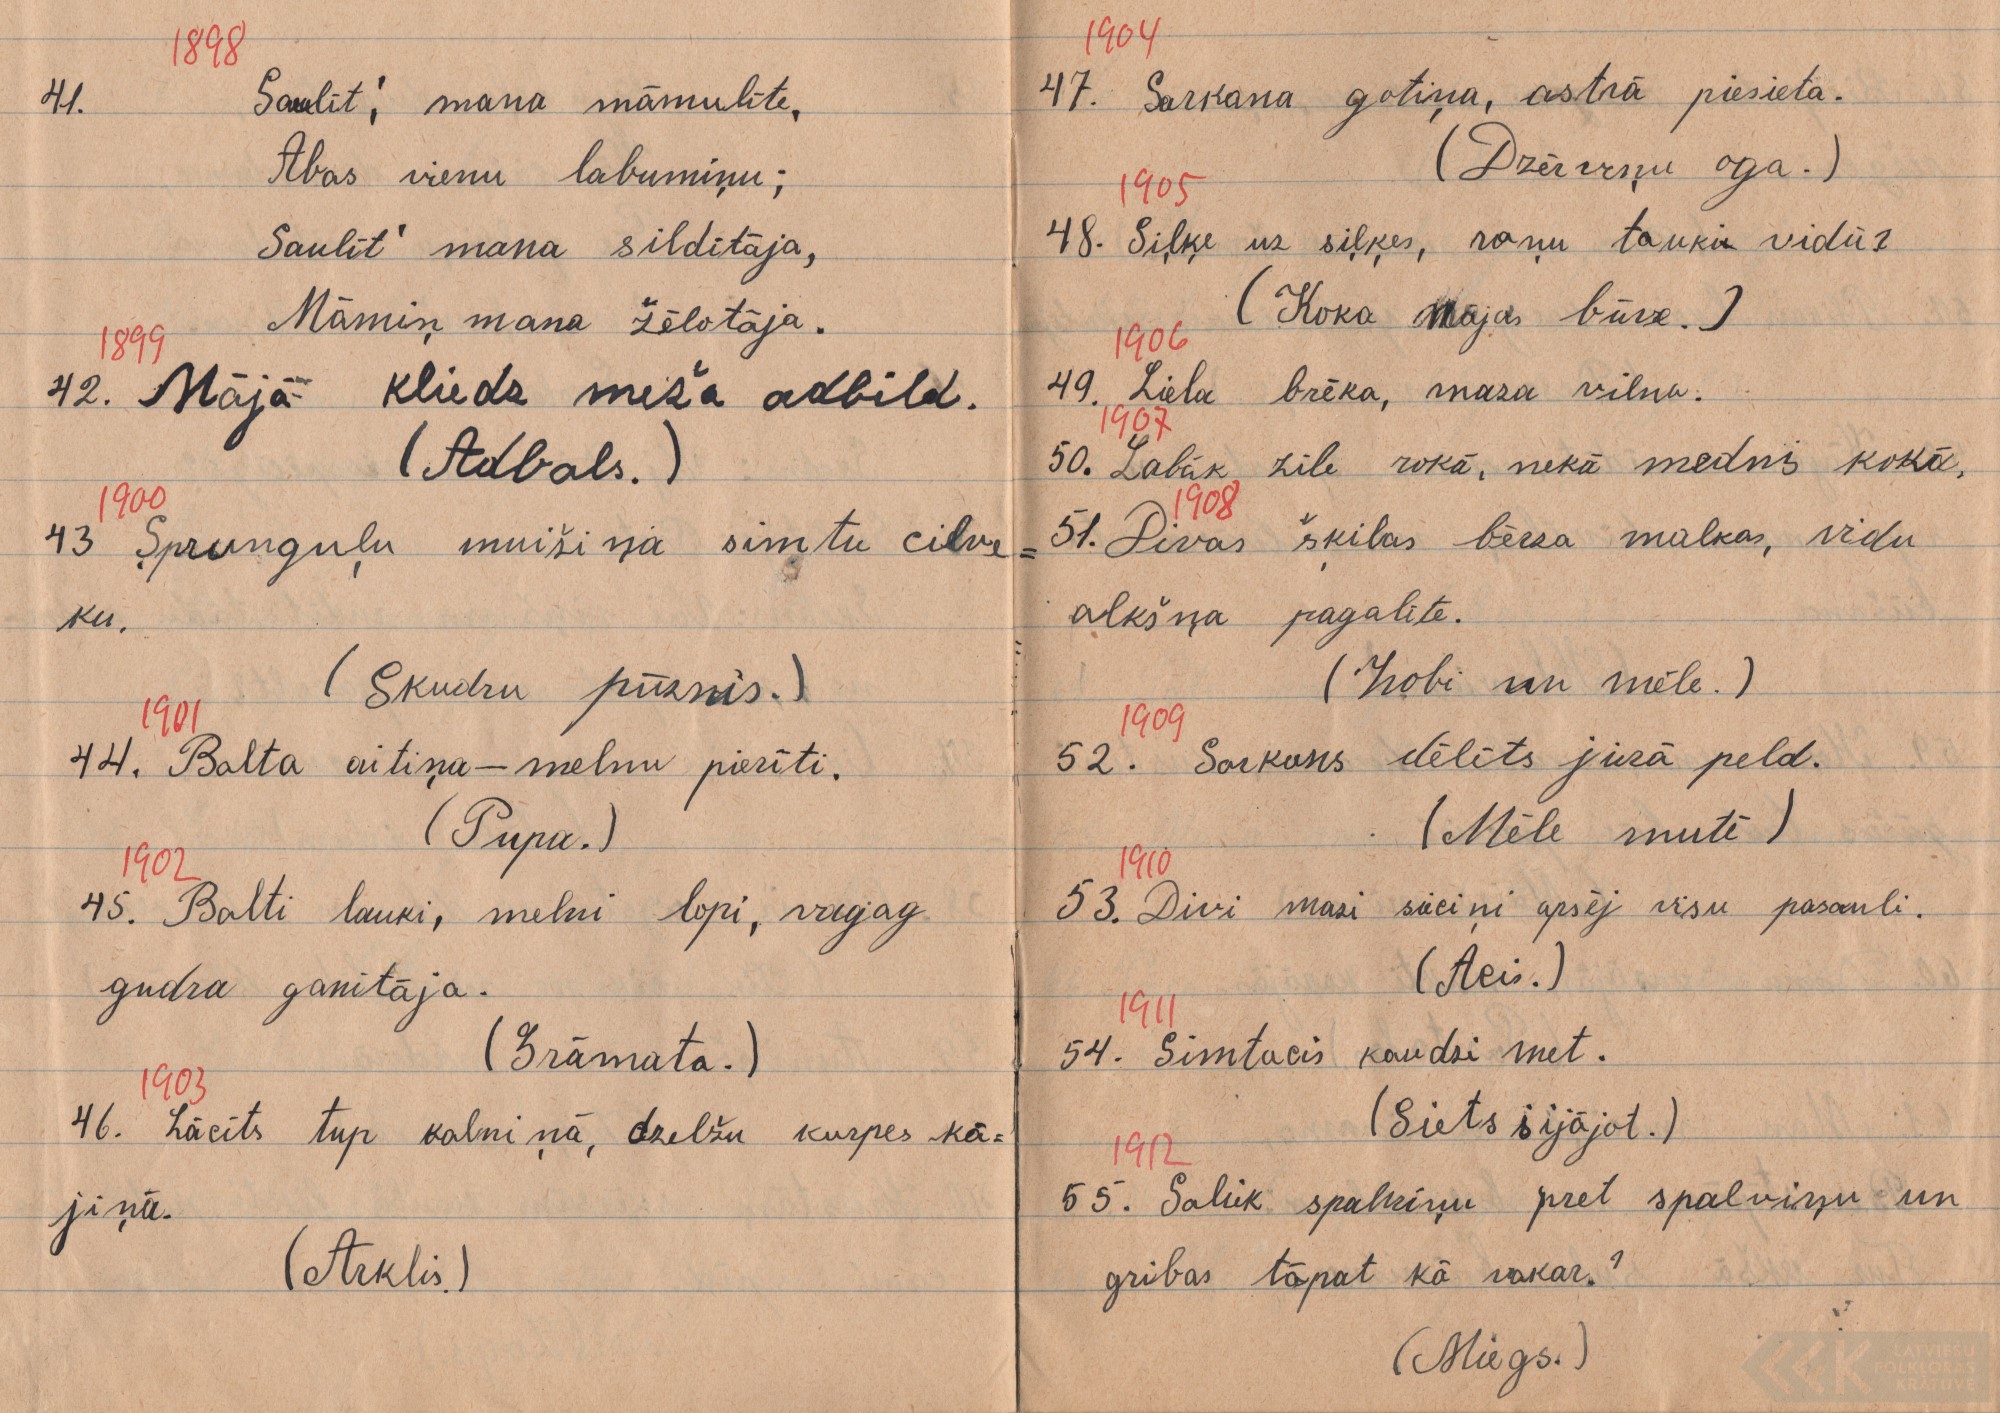 1898
41. Saulīt', mana māmulīte,
Abas vienu labumiņu;
Saulīt' mana sildītāja,
Māmiņ mana žēlotāja.
1899
42. Mājā kliedz mežā adbild.
(Adbals.)
1900
43 Sprunguļu muižiņa simtu cilve=
ku.
(Skudru pūznis.)
1901
44. Balta aitiņa—melnu pierīti.
(Pupa.)
1902
45. Balti lauki, melni lopi, vagag
gudra ganītāja.
(Grāmata.)
1903
46. Lācīts tup kalniņā, dzelžu kurpes kā=
jiņā.
(Arklis.)
1904
47. Sarkana gotiņa, astrā piesieta.
(Dzērveņu oga.)
1905
48. Siļķe uz siļķes, roņu tauki vidū?
(Koka mājas būve.)
1906
49. Liela brēka, maza vilna.
1907
50. Labāk zīle rokā, nekā mednis kokā.
1908
51. Divas šķilas bērza malkas, vidu
alkšņa pagalīte.
(Zobi un mēle.)
1909
52. Sarkans dēlīts jūrā peld.
(Mēle mutē)
1910
53. Divi mazi sieciņi apsēj visu pasauli.
(Acis.)
1911
54. Simtacis kaudzi met.
(Siets sijājot.)
1912
55. Saliek spalviņu pret spalviņu un
gribas tāpat kā vakar.?
(Miegs.)
LATVIEŠU
FOLKLORAS
KRĀTUVE